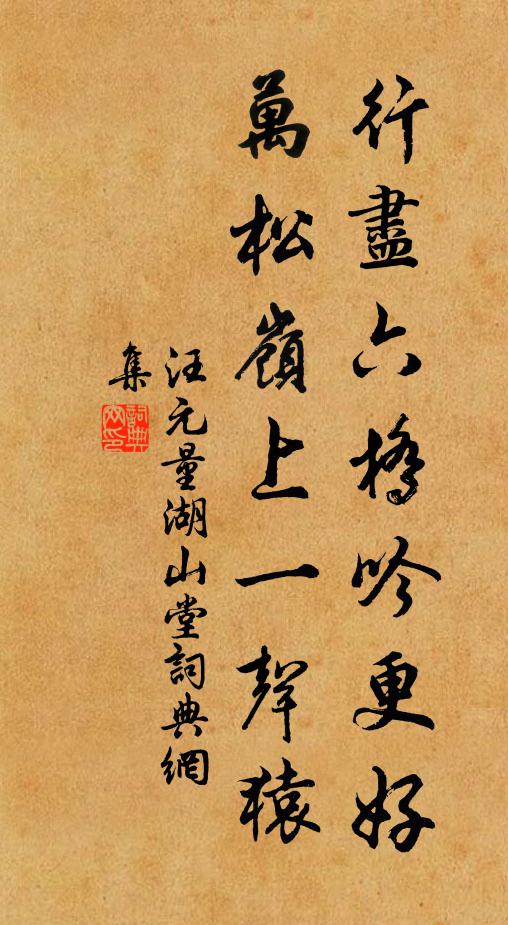 行盡六橋吟更好
萬松嶺上一聲猿
汪元量湖山堂詞典網
集
詞典
网印